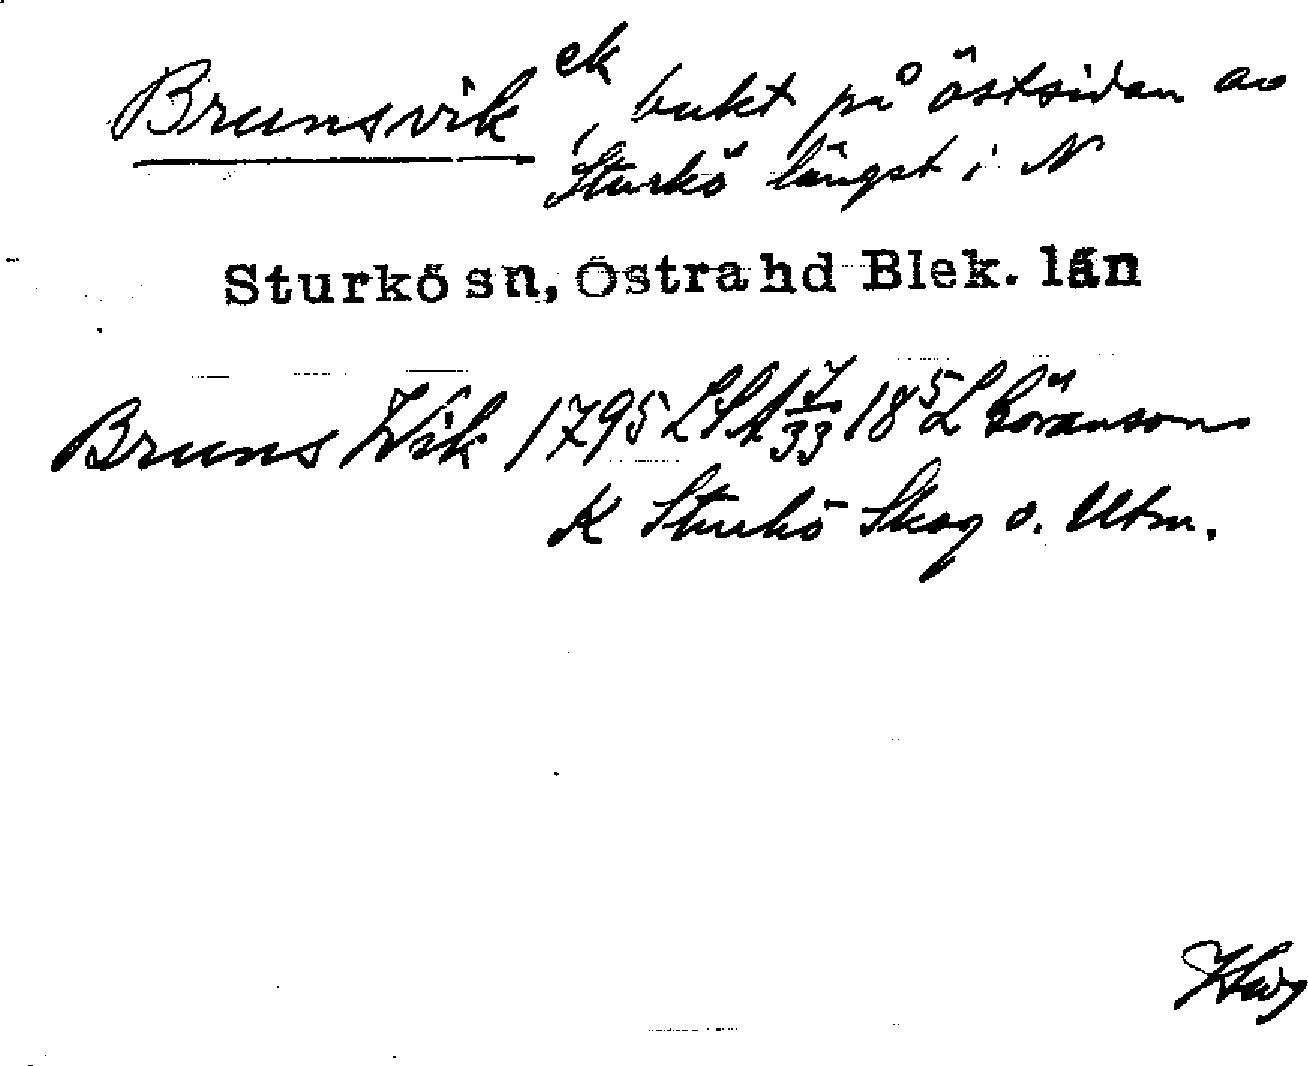 Brunsvik ek, bukt på östsidan av
Sturkö längst i N
Sturkö sn, Östra hd Blek. län
Bruns Wik 1795 LSA 7/33 18 5 L Göransson
K Sturkö Skog o. Utm.